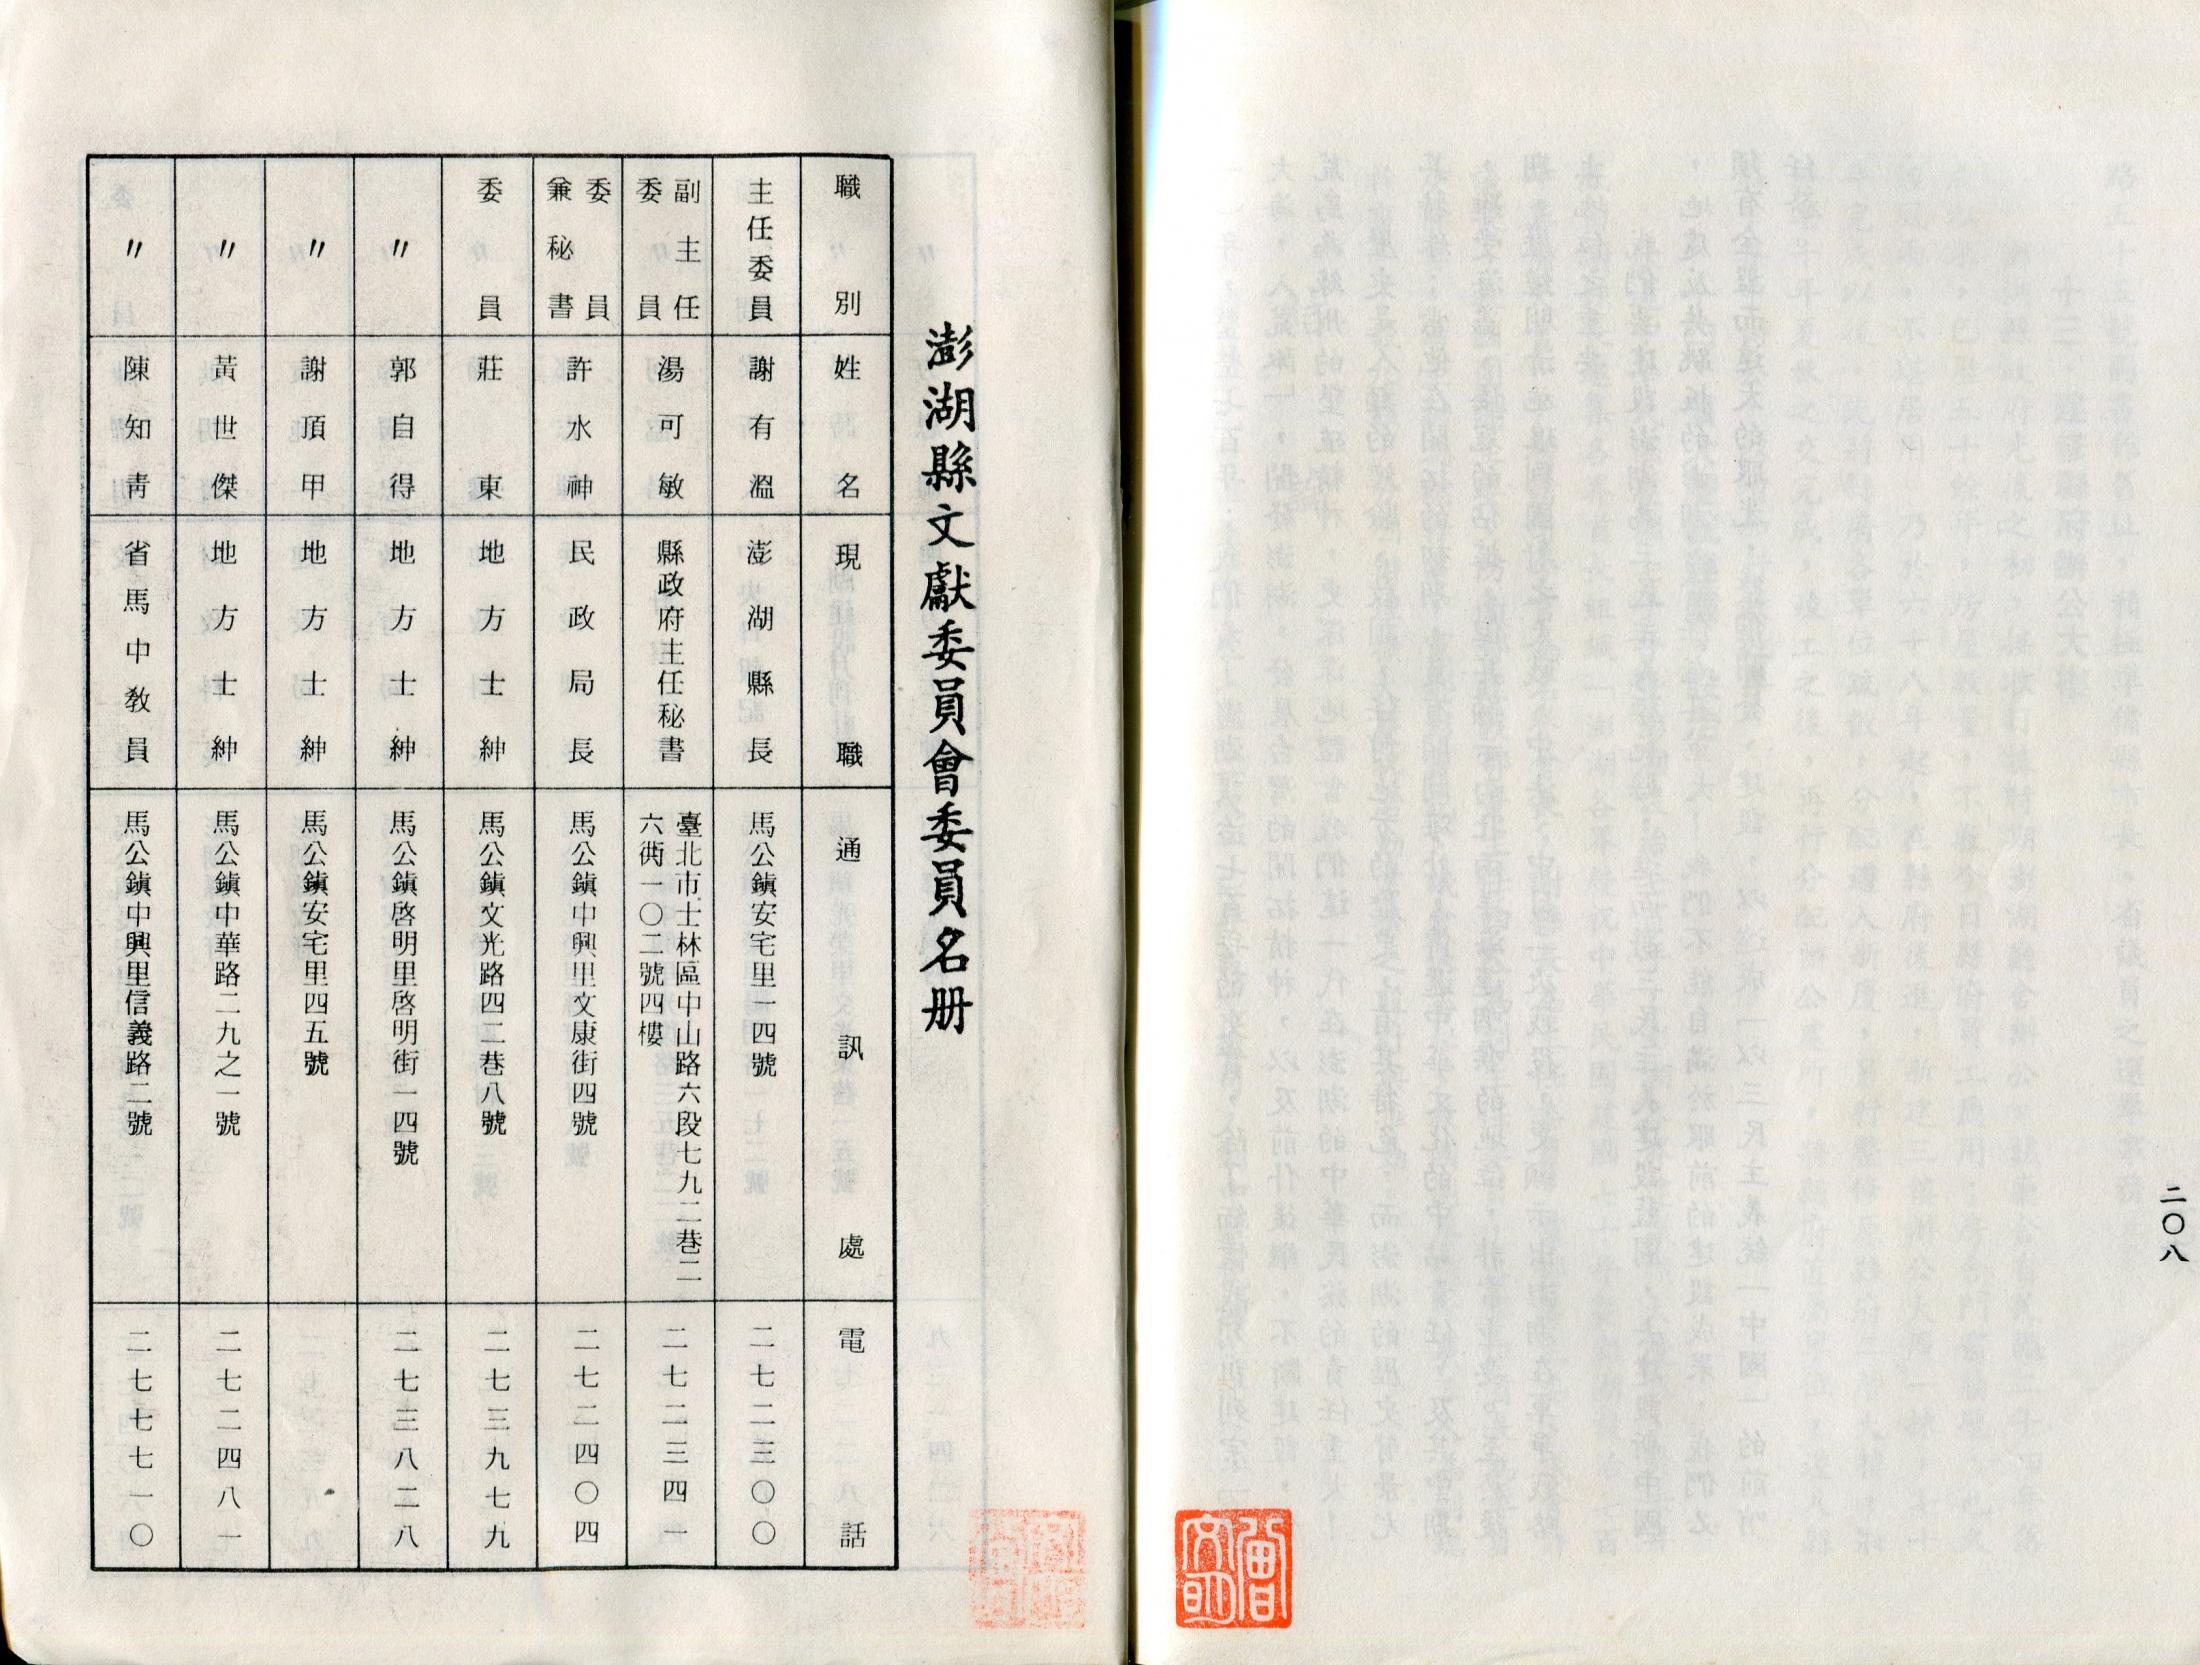 二〇八
澎湖縣文獻委員會委員名册
職別 姓名 現職 通訊處 電話
主任委員 謝有溫 澎湖縣長 馬公鎮安宅里一四號 二七二三〇〇
副主任委員 湯可敏 縣政府主任秘書 臺北市士林區中山路六段七九二巷二六衖一〇二號四樓 二七二三四一
委員兼秘書 許水神 民政局長 馬公鎮中興里文康街四號 二七二四〇四
委員 莊東 地方士紳 馬公鎮文光路四二巷八號 二七三九七九
〃 郭自得 地方士紳 馬公鎮啓明里啓明街一四號 二七三八二八
〃 謝頂甲 地方士紳 馬公鎮安宅里四五號
〃 黃世傑 地方士紳 馬公鎮中華路二九之一號 二七二四八一
〃 陳知青 省馬中教員 馬公鎮中興里信義路二號 二七七七一〇